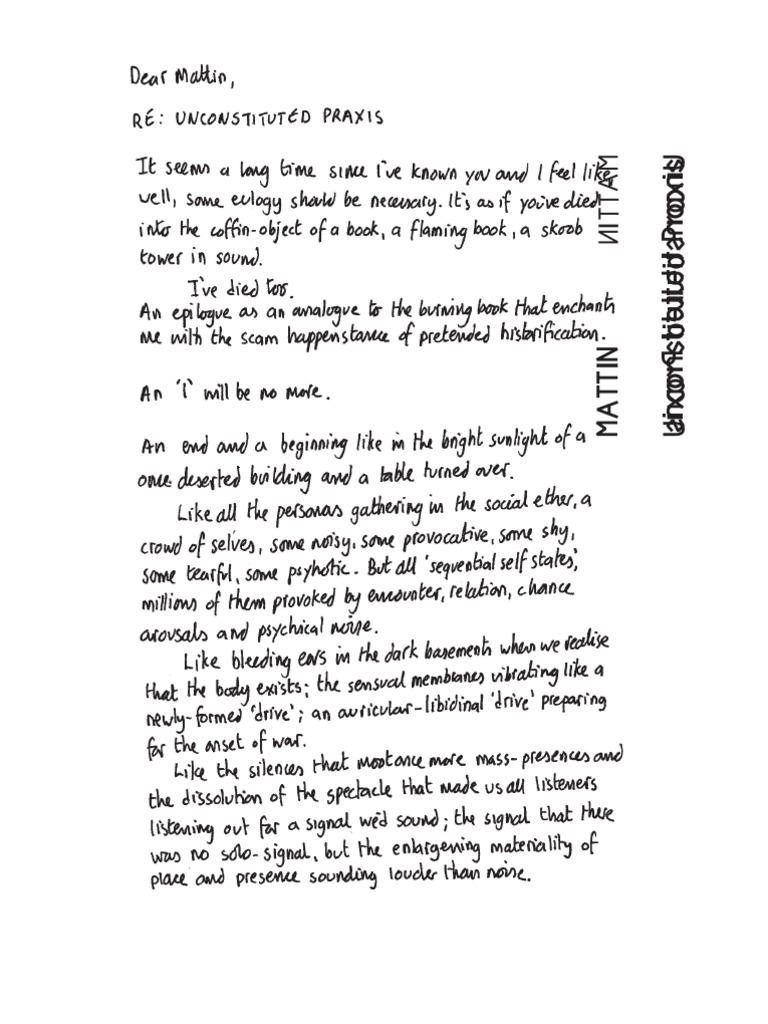 Dear Mattin,
RE: UNCONSTITUTED PRAXIS
It seems a long time since I've known you and I feel like,
well, some eulogy should be necessary. It's as if you've died
into the coffin-object of a book, a flaming book, a skoob
tower in sound.
I've died too.
An epilogue as an analogue to the burning book that enchants
me with the scam happenstance of pretended historification.
An 'I' will be no more.
An end and a beginning like in the bright sunlight of a
once deserted building and a table turned over.
Like all the personas gathering in the social ether, a
crowd of selves, some noisy, some provocative, some shy,
some tearful, some psyhotic. But all 'sequential self states',
millions of them provoked by encounter, relation, chance
arousals and psychical noise.
Like bleeding ears in the dark basements when we realise
that the body exists; the sensual membranes vibrating like a
newly-formed 'drive'; an auricular-libidinal 'drive' preparing
for the onset of war.
Like the silences that once more mass-presences and
the dissolution of the spectacle that made us all listeners
listening out for a signal we'd sound; the signal that there
was no solo-signal, but the enlargening materiality of
place and presence sounding louder than noise.
MATTIN
MATTIN
Unconstituted Praxis